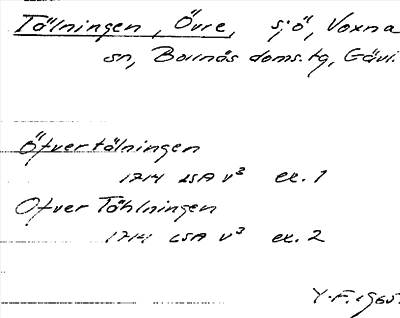 Tälningen, Övre, sjö, Voxna
sn, Bollnäs doms.tg, Gävl.
Öfvertälningen
1714 LSA V³ ex. 1
Ofver Tählningen
1714 LSA V³ ex. 2
Y.F. 1965.